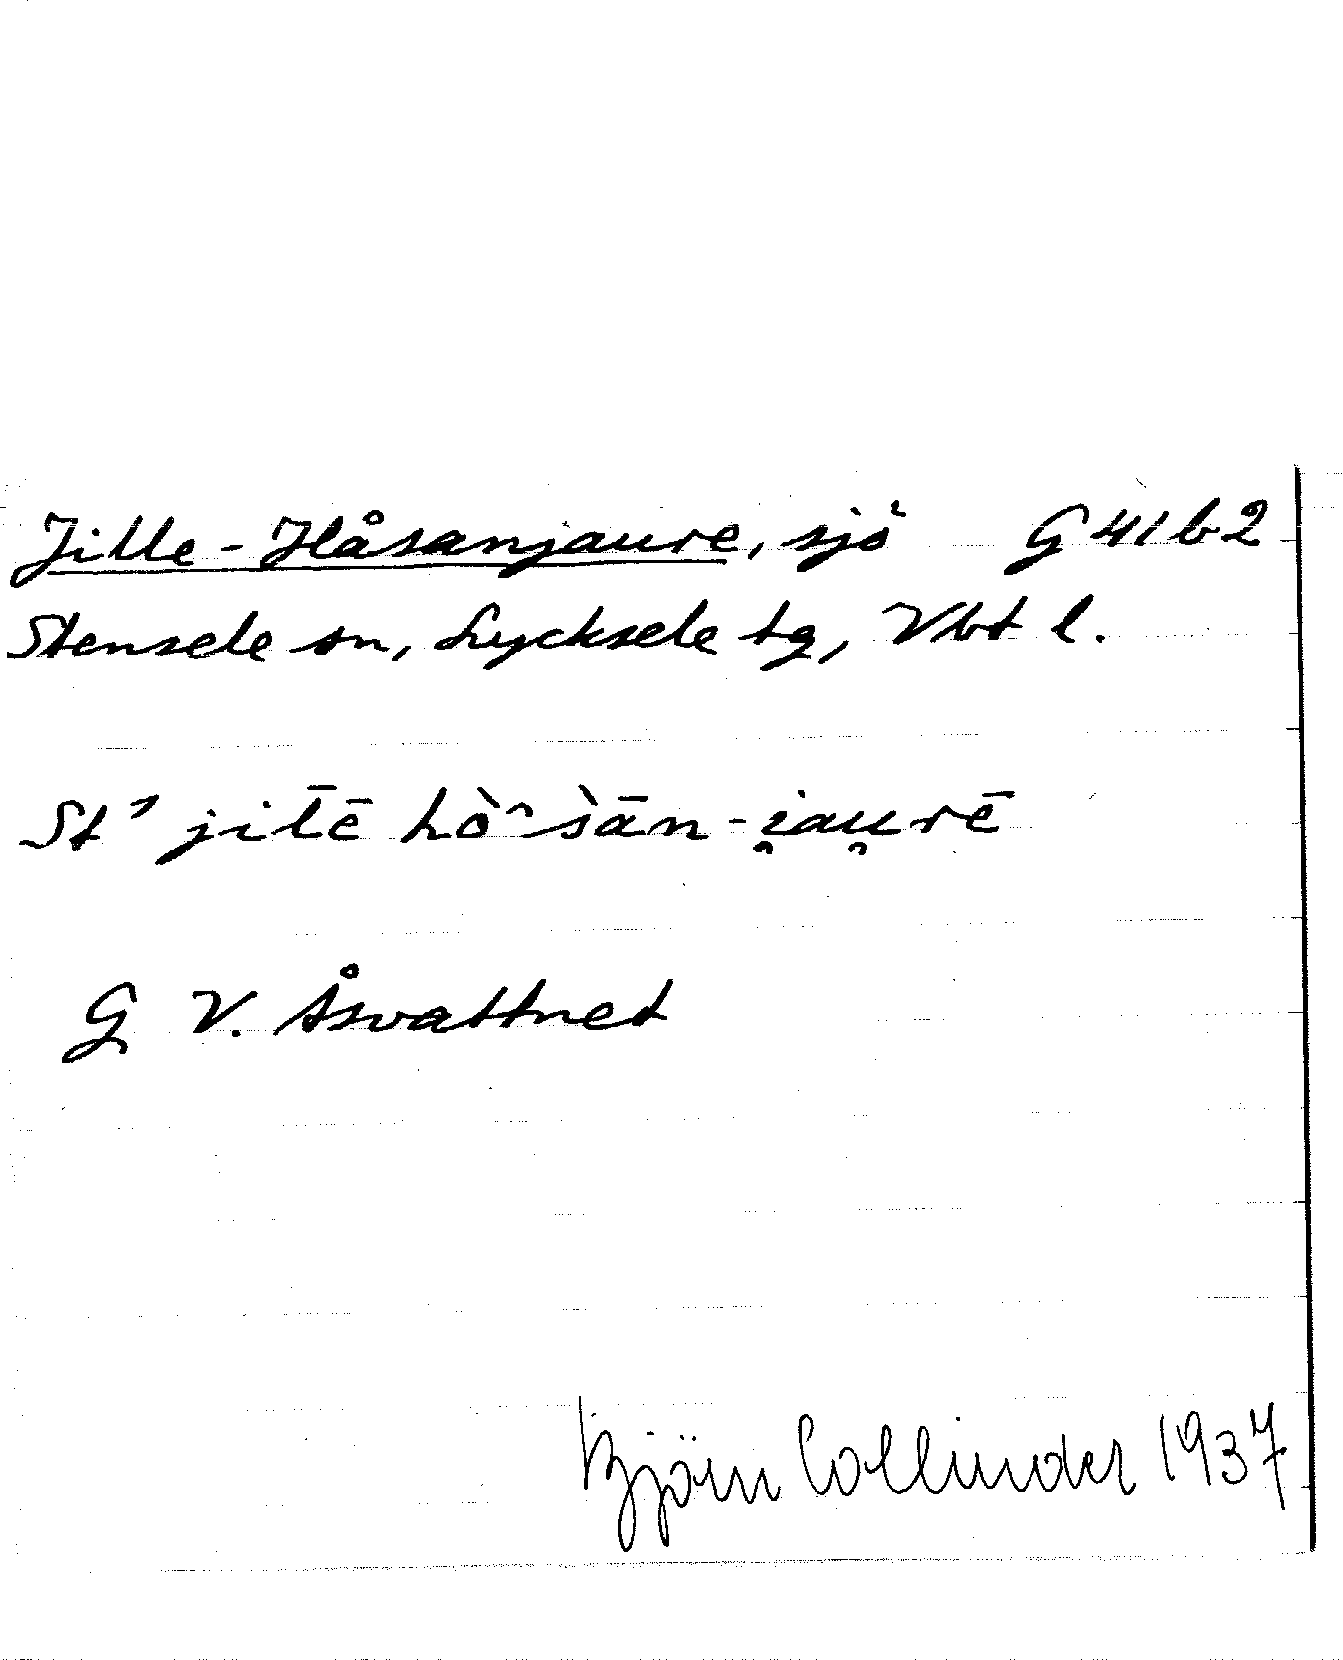 Jille-Håsanjaure, sjö G 41 b 2
Stensele sn, Lycksele tg, Vbt l.
St ʼ jil̄ē hò̂s̀ān-i̯au̯rē
G V. Åsvattnet
Björn Collinder 1937